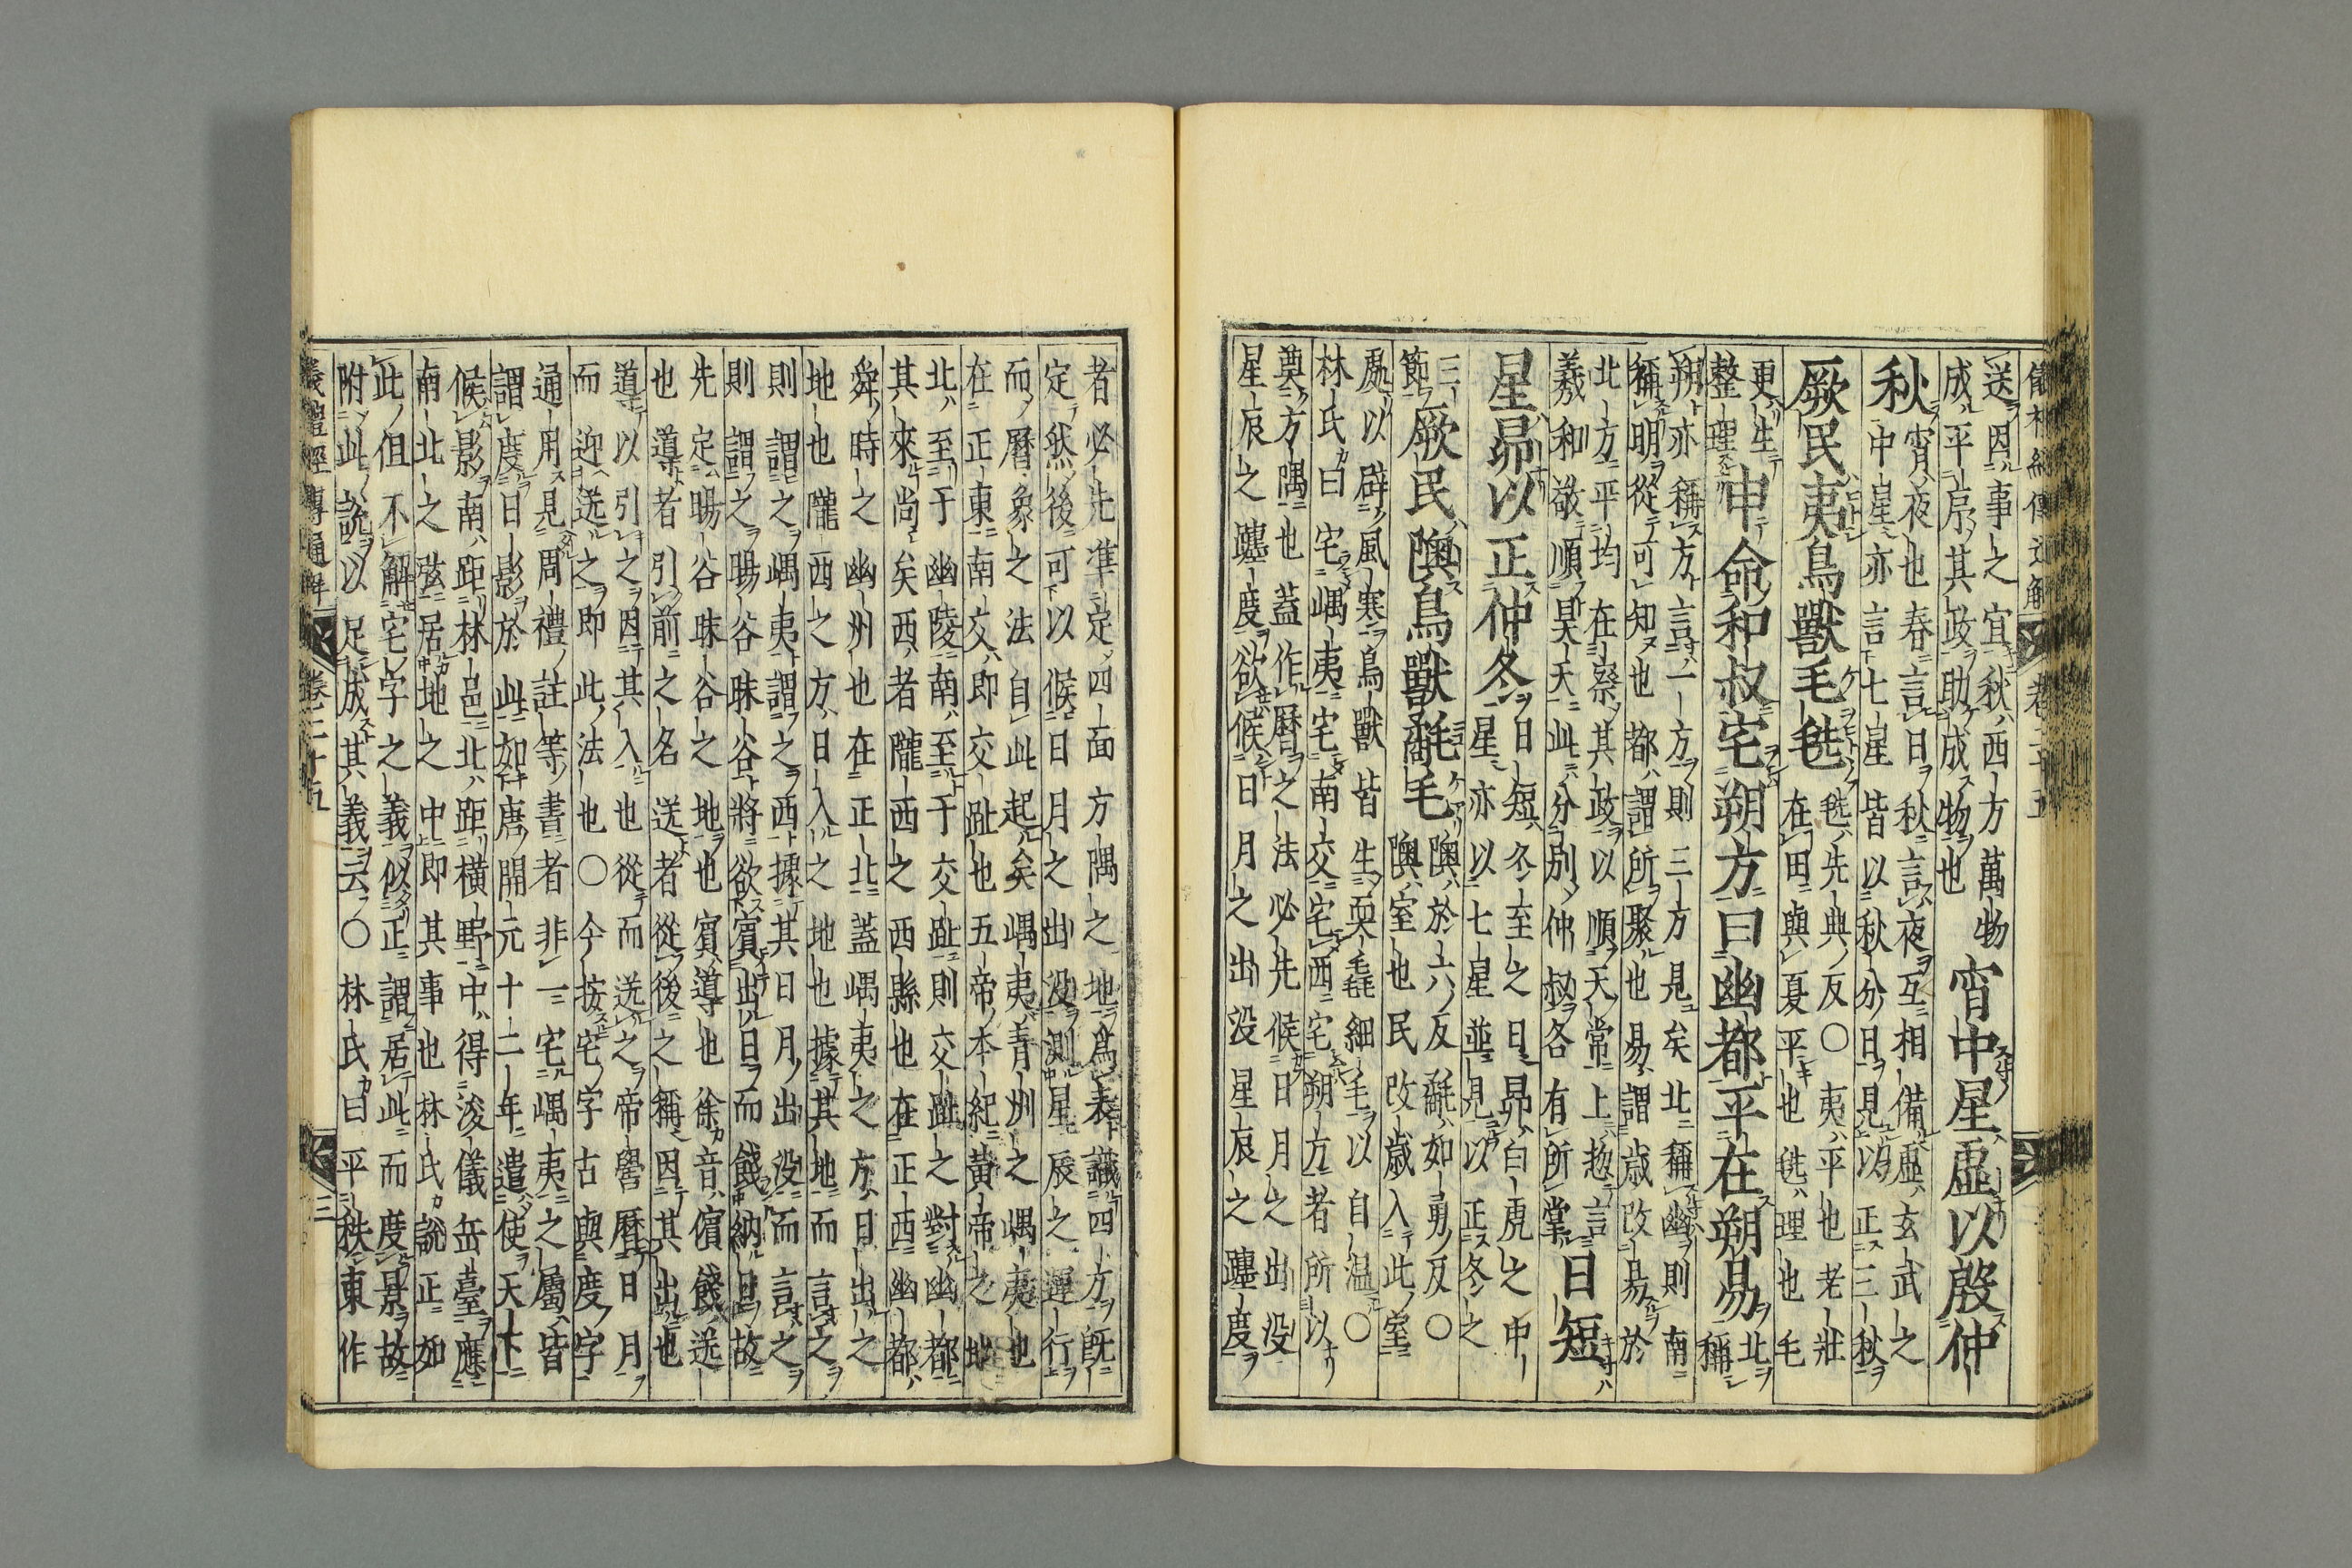 儀禮經傳通解 卷二十五
送因事之宜秋西方萬物
成平序其政助成物也
宵中星虛以殷仲
秋
宵夜也春言日秋言夜互相備虛玄武之
中星亦言七星皆以秋分日見以正三秋
厥民夷鳥獸毛毨
毨先典反○夷平也老壯
在田與夏平也毨理也毛
更生
整理
申命和叔宅朔方曰幽都平在朔易
北
稱
朔亦稱方言一方則三方見矣北稱幽則南
稱明從可知也都謂所聚也易謂歲改易於
北方平均在察其政以順天常上惣言
羲和敬順昊天此分別仲叔各有所掌
日短
星昴以正仲冬
日短冬至之日昴白虎之中
星亦以七星並見以正冬之
三
節
厥民隩鳥獸氄毛
隩於六反氄如勇反○
隩室也民改歲入此室
處以辟風寒鳥獸皆生耎毳細毛以自温○
林氏曰宅嵎夷宅南交宅西宅朔方者所以
奠方隅也蓋作曆之法必先候日月之出没
星辰之躔度欲候日月之出没星辰之躔度
者必先準定四面方隅之地為表識四方既
定然後可以候日月之出没測星辰之運行
而曆象之法自此起矣嵎夷青州之嵎夷也
在正東南交即交趾也五帝本紀黃帝之地
北至于幽陵南至于交趾則交趾之對幽都
其來尚矣西者隴西之西縣也在正西幽都
舜時之幽州也在正北蓋嵎夷之方日出之
地也隴西之方日入之地也據其地而言之
則謂之嵎夷謂之西據其日月出没而言之
則謂之暘谷昧谷將欲賓出日而餞納日故
先定暘谷昧谷之地也賓導也徐音儐餞送
也導者引前之名送者從後之稱因其出也
導以引之因其入也從而送之帝嚳曆日月
而迎送之即此法也○今按宅字古與度字
通用見周禮註等書者非一宅嵎夷之屬皆
謂度日影於此如唐開元十二年遣使天下
候影南距林邑北距橫野中得浚儀岳臺應
南北之弦居地之中即其事也林氏說正如
此但不解宅字之義似正謂居此而度景故
附此說以足成其義云○林氏曰平秩東作
儀禮經傳通解 卷二十五 三